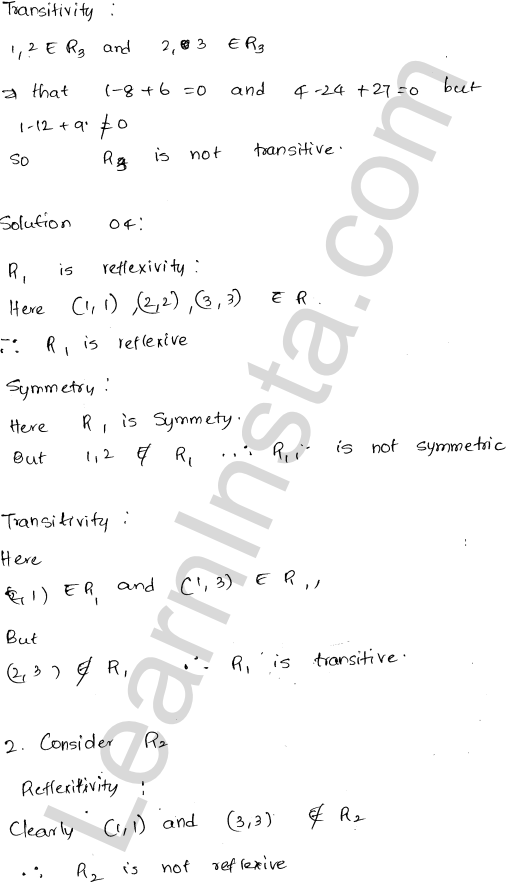 Transitivity :
1,2 ∈ R3 and 2, 3 ∈ R3
⇒ that 1-8+6 =0 and 4-24+27=0 but
1-12+9 ≠0
So R3 is not transitive.
Solution 04:
R1 is reflexivity :
Here (1,1) ,(2,2) ,(3,3) ∈ R.
∴ R1 is reflexive
Symmetry :
Here R1 is Symmety.
But 1,2 ∉ R1 ∴ R1 is not symmetric
Transitivity :
Here
(2,1) ∈ R1 and (1,3) ∈ R1,
But
(2,3) ∉ R1 ∴ R1 is transitive.
2. Consider R2
Reflexitivity :
Clearly (1,1) and (3,3) ∉ R2
∴ R2 is not reflexive
LearnInsta.com